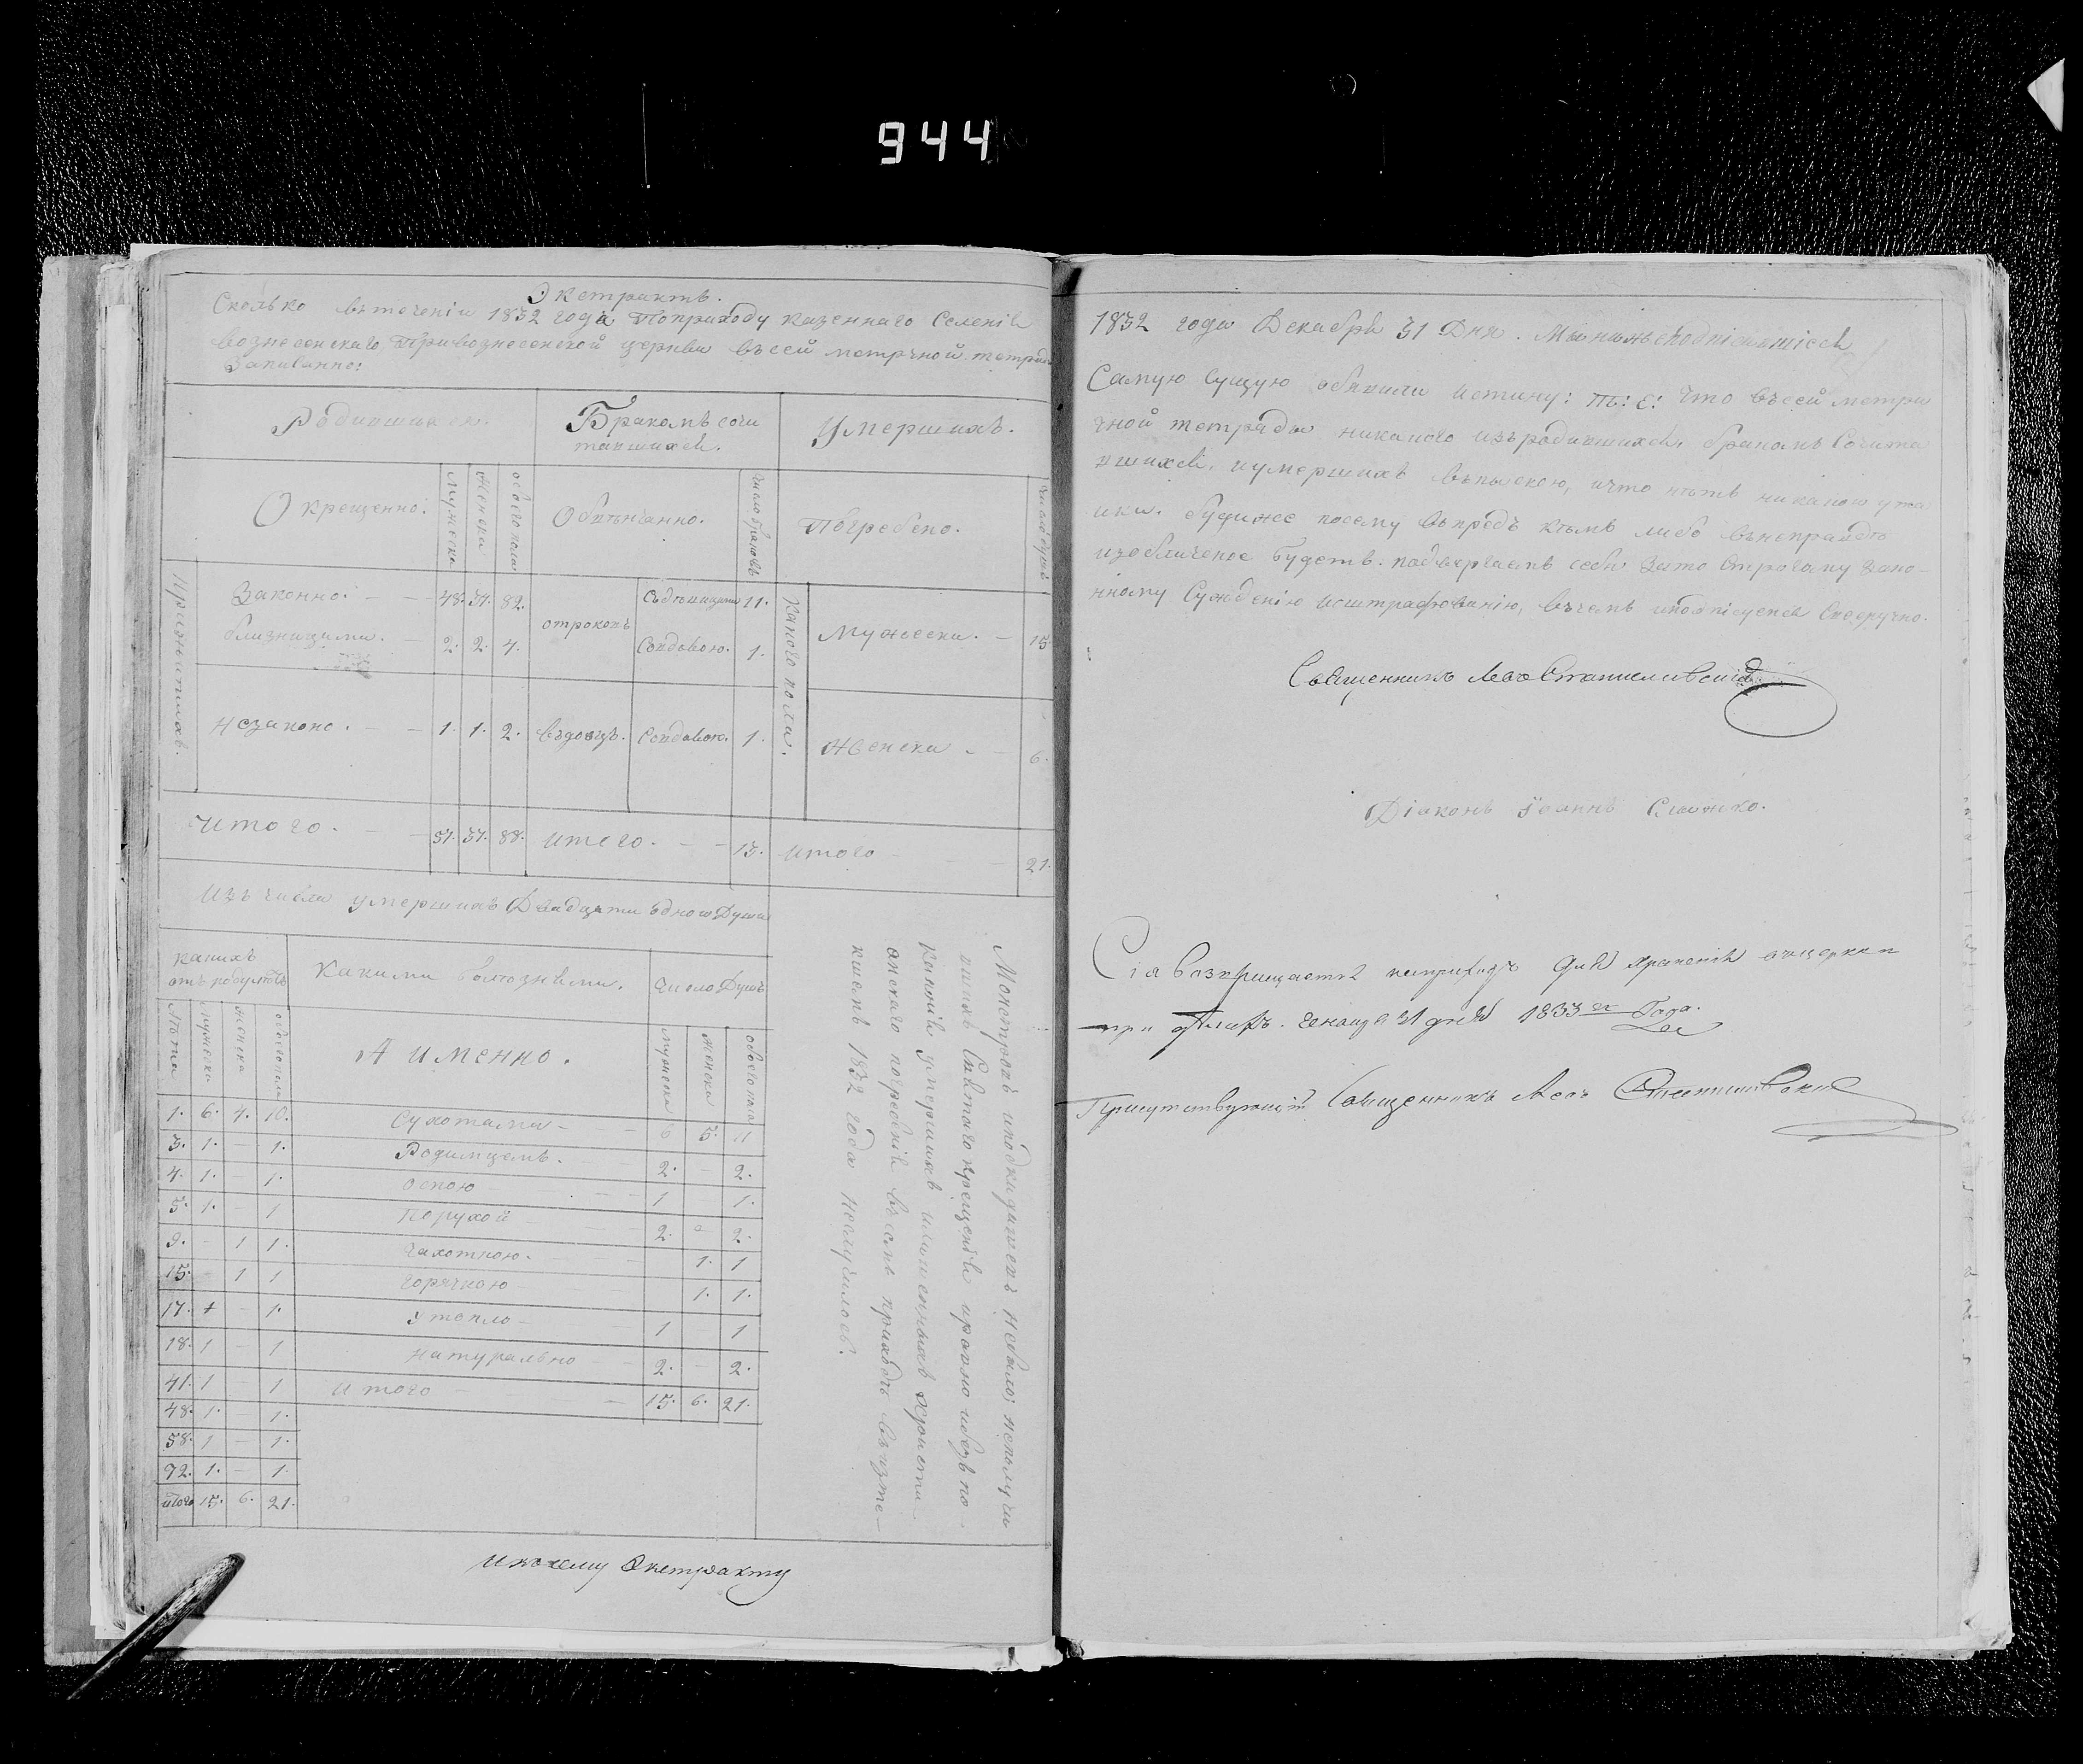 944
Экстрактъ.
Сколько въ теченіи 1832 года По приходу казеннаго Селенія
вознесенскаго При вознесенской церкви въ сей метрчной тетрад
Записанно:
Родившихся. Бракомъ сочи Умершихъ.
тавшихся.
Окрещенно. мужеска женска обоего пола Обвѣнчанно. число браковъ Погребено. число душъ
Законно. 48. 34. 82. отрокомъ Съ дѣвицами 11. Какого пола. Мужеска. 15
близнецами. 2. 2. 4. Со вдовою. 1.
Незаконо. 1. 1. 2. въдовцъ. Со вдовою. 1. Женска 6.
Итого. 51. 37. 88. Итого. 13. Итого 21.
Изъ числа умершихъ Двадцати одного Души
какихъ Какими болѣзнями. Число Душъ
отъ роду лѣтъ
Лѣта мужеска женска обоего пола А именно. мужеска женска обоего пола
1. 6. 4. 10. Сухотами 6 5. 11
3. 1. – 1. Родимцемъ. 2. – 2.
4. 1. – 1. Оспою 1 – 1.
5. 1. – 1 Порухой 2. – 2.
9. – 1 1. Чахоткою. 1. 1
15. 1 1 Горячкою 1. 1.
17. 1 – 1. Утопло 1 – 1
18. 1 – 1 Натурально 2. – 2.
41. 1 – 1 Итого 15. 6. 21.
48. 1. – 1.
58. 1 – 1.
72. 1. – 1.
Итого 15. 6. 21.
Монстровъ и подкидишевъ небыло; неполучи
вшихъ Святого крещенія и равно и безъ по
каянія умершихъ и лишенныхъ христи
анскаго погребенія въ семъ приходѣ въ изте
кшемъ 1832 года неслучилось.
И къ сему Экстракту
1832 года Декабря 31 Дня. Мы нижеподписавшіеся
Самую Сущую объявили истину: т: е: что въ сей метри
чной тетради никакого изъ родившихся, бракомъ Сочета
вшихся, и умершихъ выпускою, и что нѣтъ никакою ута
ики. будиже посему впредь кѣмъ либо въ неправдѣ
изобличеное будетъ. подвергаемъ себя зато Строгому зако
нному Сужденію и штрафованію, въ чемъ и подписуемся Своеручно.
Священникъ Левъ Станиславскій
Діаконъ Іоаннъ
Сія возвращается въ приходъ для храненія въ церкви
при дѣлахъ. Генваря 31 дня 1833 го Года.
Присутствующій Священникъ Левъ Станиславскій